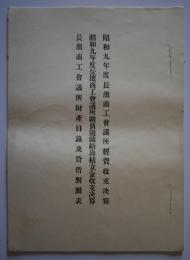 昭和九年度長濱商工會議所經費收支決算
昭和九年度長濱商工會議所職員退職給與積立金收支決算
長濱商工會議所財產目錄及貸借對照表